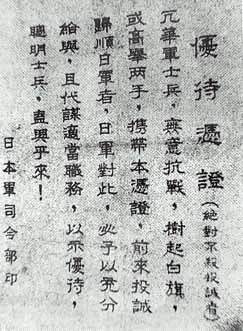 優待憑證(絕對不殺投誠者)
凡華軍士兵，無意抗戰，樹起白旗，
或高舉兩手，携帶本憑證，前來投誠
歸順日軍者，日軍對此，必予以充分
給與，且代謀適當職務，以示優待，
聰明士兵，盍興乎來！
日本軍司令部印